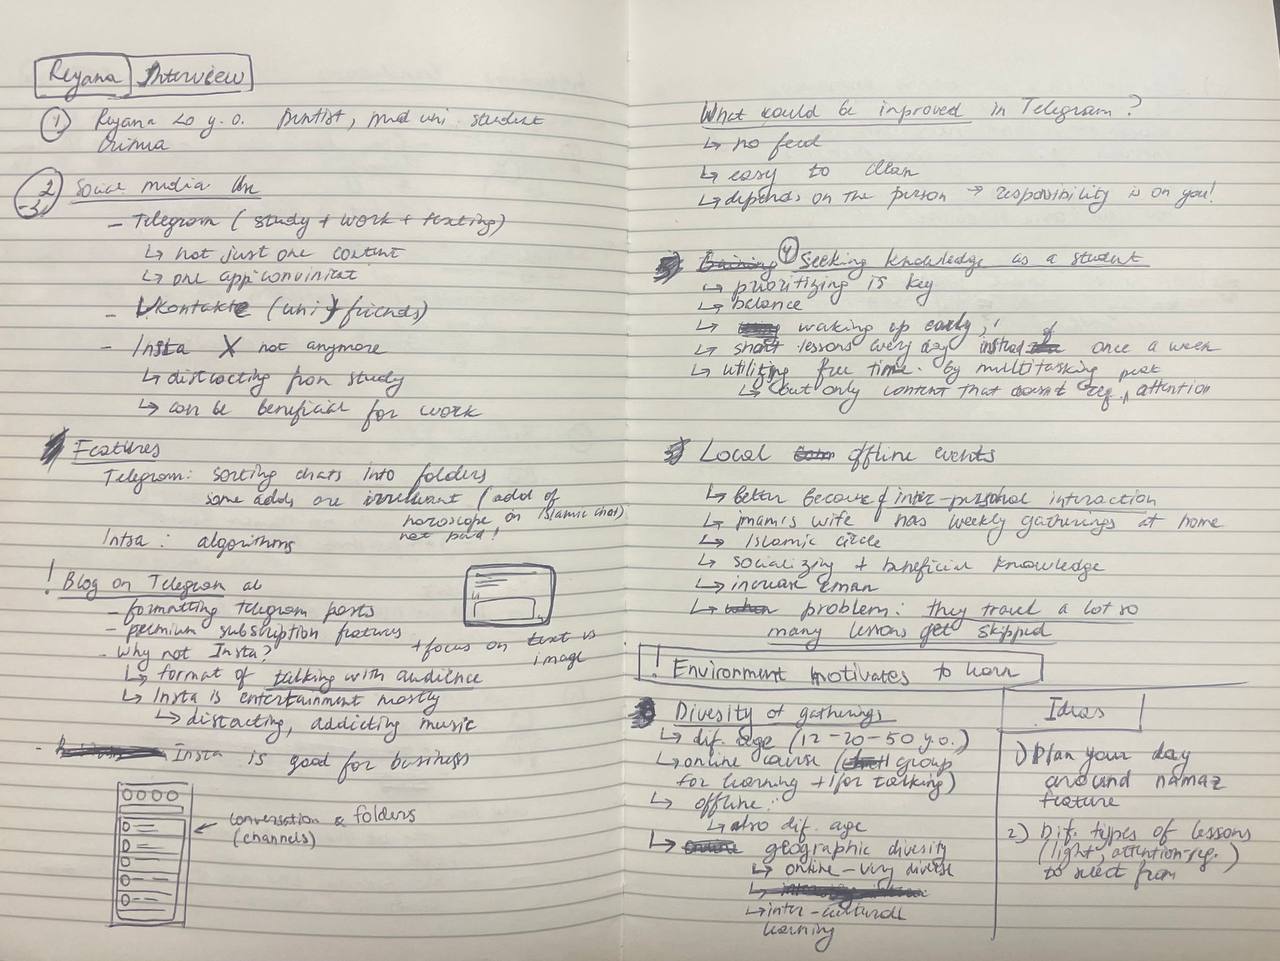 Reyana Interview
1 Reyana 20 y.o. Dentist, med uni. student
Crimea
2-3 Social media Use
- Telegram (study + work + texting)
↳ not just one content
↳ one app convinient
- VKontakte (uni + friends)
- Insta X not anymore
↳ distracting from study
↳ can be beneficial for work
Features
Telegram: sorting chats into folders
some adds are irrelevant (add of
horoscope on islamic chat)
not paid!
Intsa: algorithms
! Blog on Telegram
- formatting telegram posts
- premium subscription features
- Why not Insta?
+ focus on text vs
image
↳ format of talking with audience
↳ Insta is entertainment mostly
↳ distacting, addicting music
- Insta is good for business
conversation & folders
(channels)
What could be improved in Telegram?
↳ no feed
↳ easy to clean
↳ depends on the person → responsibility is on you!
4 Seeking knowledge as a student
↳ prioritizing is key
↳ balance
↳ waking up early,!
↳ short lessons every day instead of once a week
↳ utilizing free time. by multitasking
↳ but only content that doesnt req. attention
5 Local offline events
↳ better because of inter-personal interaction
↳ imam's wife has weekly gatherings at home
↳ Islamic circle
↳ socializing + beneficial knowledge
↳ increase eman
↳ problem: they travel a lot so
many lessons get skipped
! Environment motivates to learn
Divesity of gatherings
↳ dif. age (12-20-50 y.o.)
↳ online course (group
for learning + 1 for talking)
↳ offline:
↳ also dif. age
↳ geographic diversity
↳ online - very diverse
↳ inter-cultural
learning
Ideas
1) Plan your day
around namaz
feature
2) Dif. types of lessons
(light, attention-req.)
to select from